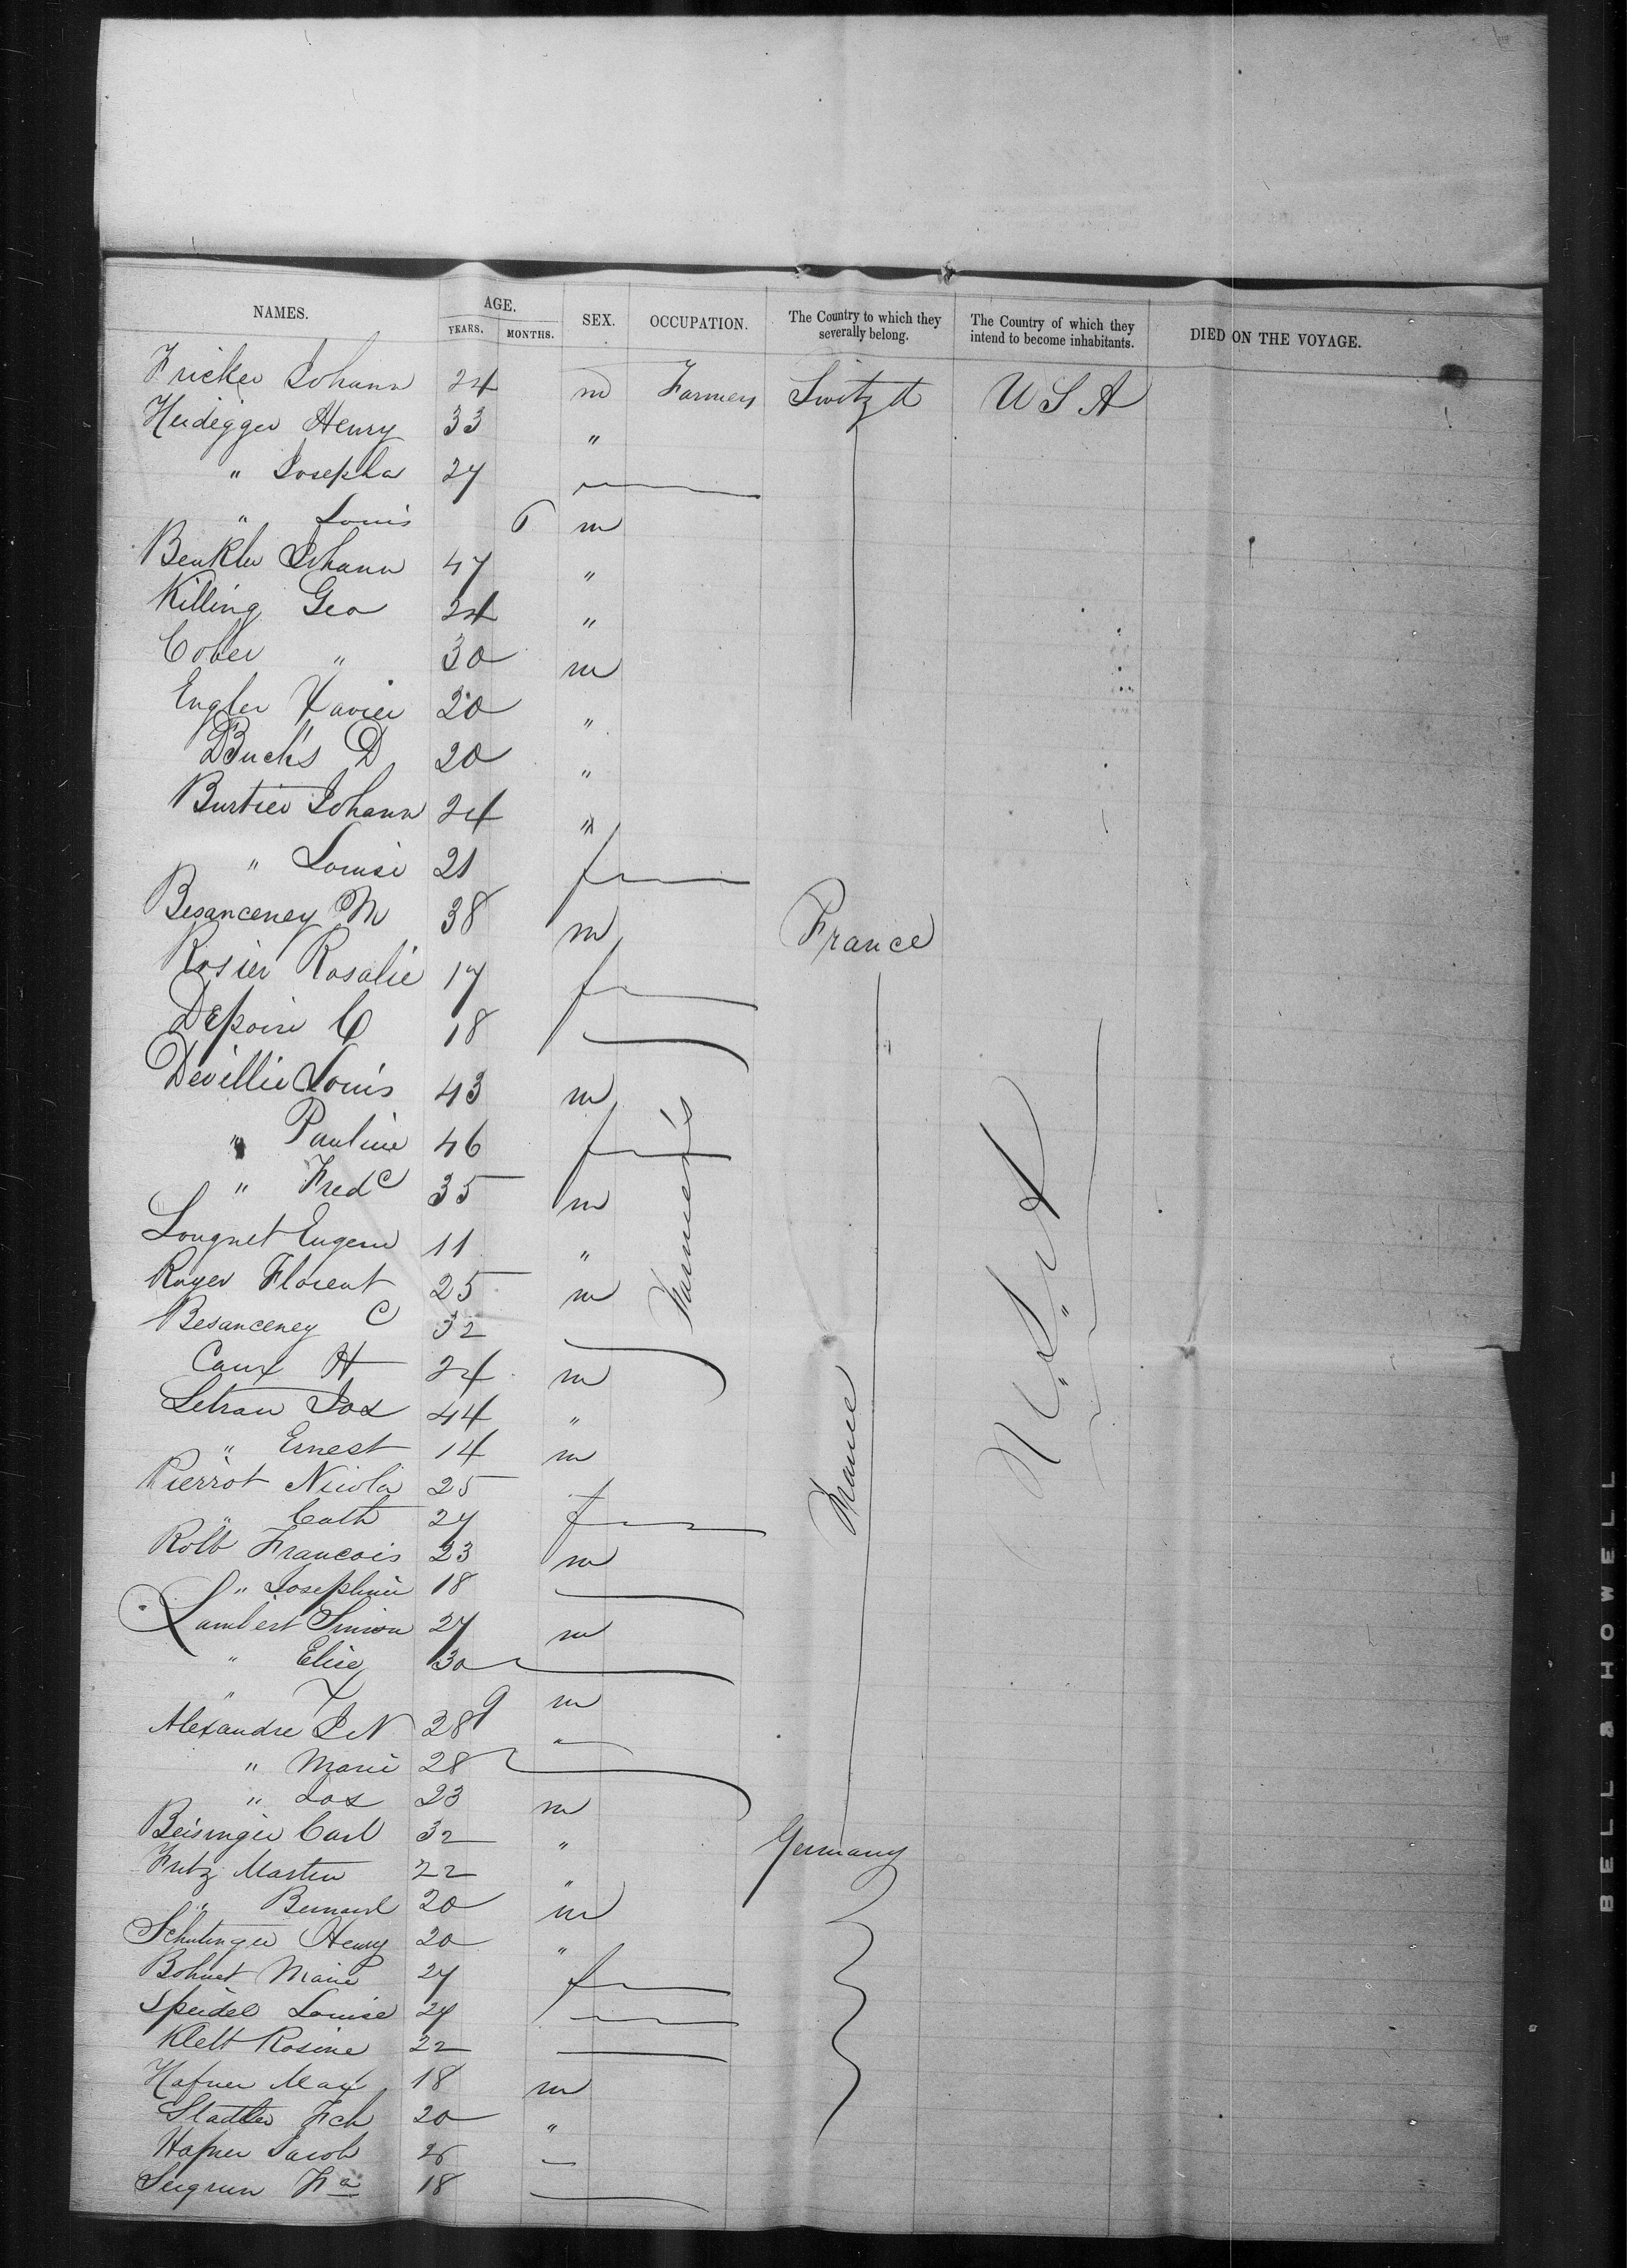 NAMES. AGE. SEX. OCCUPATION. The Country to which they severally belong. The Country of which they intend to become inhabitants. DIED ON THE VOYAGE.
YEARS. MONTHS.
Fricker Johann 24 m Farmers Switzd U S A
Heidigger Henry 33 "
" Josepha 27
" Louis 6 m
Benkler Johann 47 "
Killing Geo 24 "
Cober " 30 m
Engler Xavier 20 "
Buchs D 20 "
Burtier Johann 24 "
" Louise 21 f
Besanceney M 38 m France
Rosier Rosalie 17 f
Depoire C 18
Devillie Louis 43 m
" Pauline 46 f
" Fredc 35 m
Longnet Eugene 11 "
Roger Florent 25 m
Besanceney C 32
Caux H 24 m
Letrau Jos 44 "
" Ernest 14 m
Pierrot Nicola 25
" Cath 27 f
Kolb Francois 23 m
" Josephine 18
Lambert Simon 27 m
" Elise 30
" X 9 m
Alexandre J N 28 "
" Marie 28
" Jos 23 m
Beisinger Carl 32 " Germany
Fritz Martin 22 "
" Bernard 20 m
Schulinger Henry 20 "
Bohnet Marie 27 f
Speidel Louise 24
Klett Rosine 22
Hafner Max 18 m
Stadtler Fch 20 "
Hafner Jacob 26
Seigrun Fa 18
Farmers
France
U.S.A
BELL & HOWELL